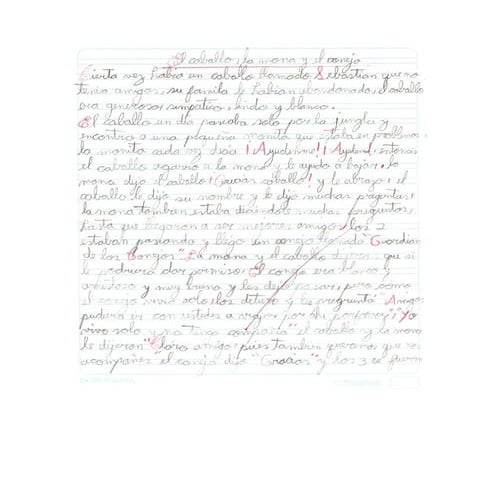 El caballo, la mona y el conejo
Cierta vez habia un caballo llamado Sebastian que no
tenia amigos, su familia le habian abandonado, el caballo
era generoso, simpatico, lindo y blanco.
El caballo un dia paseaba solo por la jungla y
encontro a una pequeña monita que estaba en problemas
la monita cada vez decia ¡Ayudenme! ¡Ayudenme!, entonces
el caballo agarro a la mona y le ayudo a bajar, la
mona dijo caballo ¡Gracias caballo! y le abrazo, el
caballo le dijo su nombre y le dijo muchas preguntas,
la mona tambien estaba diciendole muchas preguntas,
hasta que llegaron a ser mejores amigos, los 2
estaban paseando y llego un conejo llamado Guardian
de los Conejos" La mona y el caballo dijeron que si
le podria dar permiso, El conejo era blanco y
y muy bueno y les dejo pasar, pero como
el conejo vivia solo los detuvo y le pregunto" Amigos
pudiera ir con ustedes a viajar por ahi porfavor," "Yo
vivo solo y no tengo compañia" el caballo y la mona
le dijeron "Claro amigo, pues tambien queremos que nos
acompañes" el conejo dijo "Gracias" y los 3 se fueron